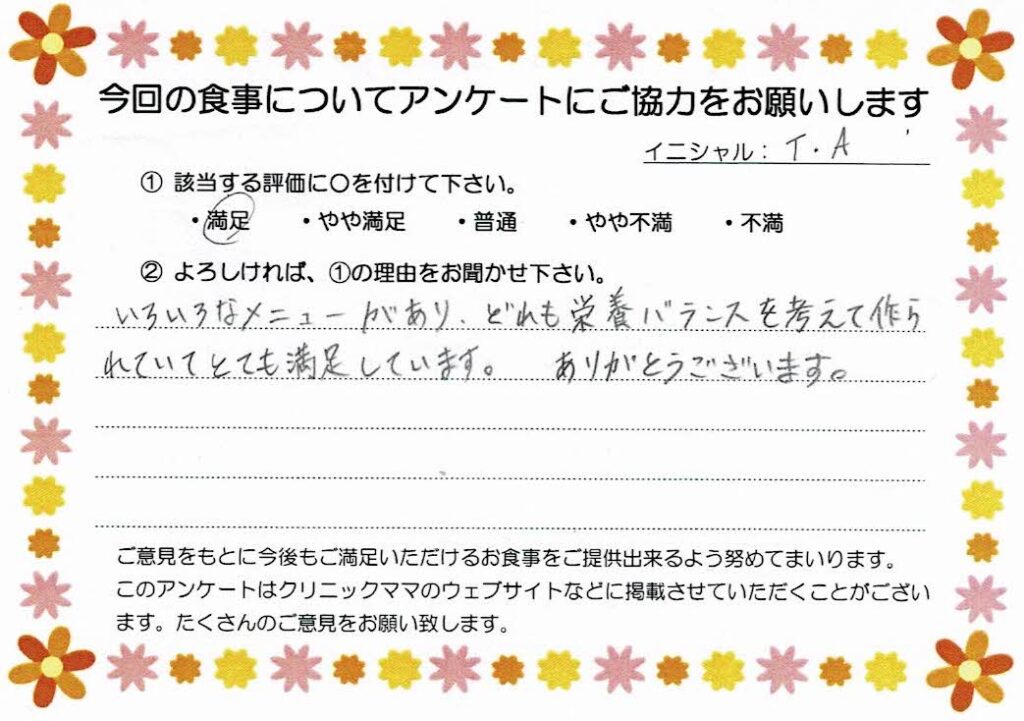 今回の食事についてアンケートにご協力をお願いします
イニシャル： T.A
① 該当する評価に〇を付けて下さい。
・満足 ・やや満足 ・普通 ・やや不満 ・不満
② よろしければ、①の理由をお聞かせ下さい。
いろいろなメニューがあり、どれも栄養バランスを考えて作ら
れていてとても満足しています。 ありがとうございます。
ご意見をもとに今後もご満足いただけるお食事をご提供出来るよう努めてまいります。
このアンケートはクリニックママのウェブサイトなどに掲載させていただくことがござい
ます。たくさんのご意見をお願い致します。